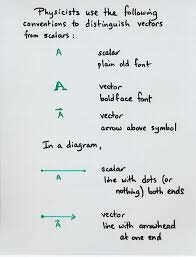 Physicists use the following
conventions to distinguish vectors
from scalars :
A scalar
plain old font
A vector
boldface font
A⃗ vector
arrow above symbol
In a diagram,
scalar
A line with dots (or
nothing) both ends
vector
A⃗ line with arrowhead
at one end